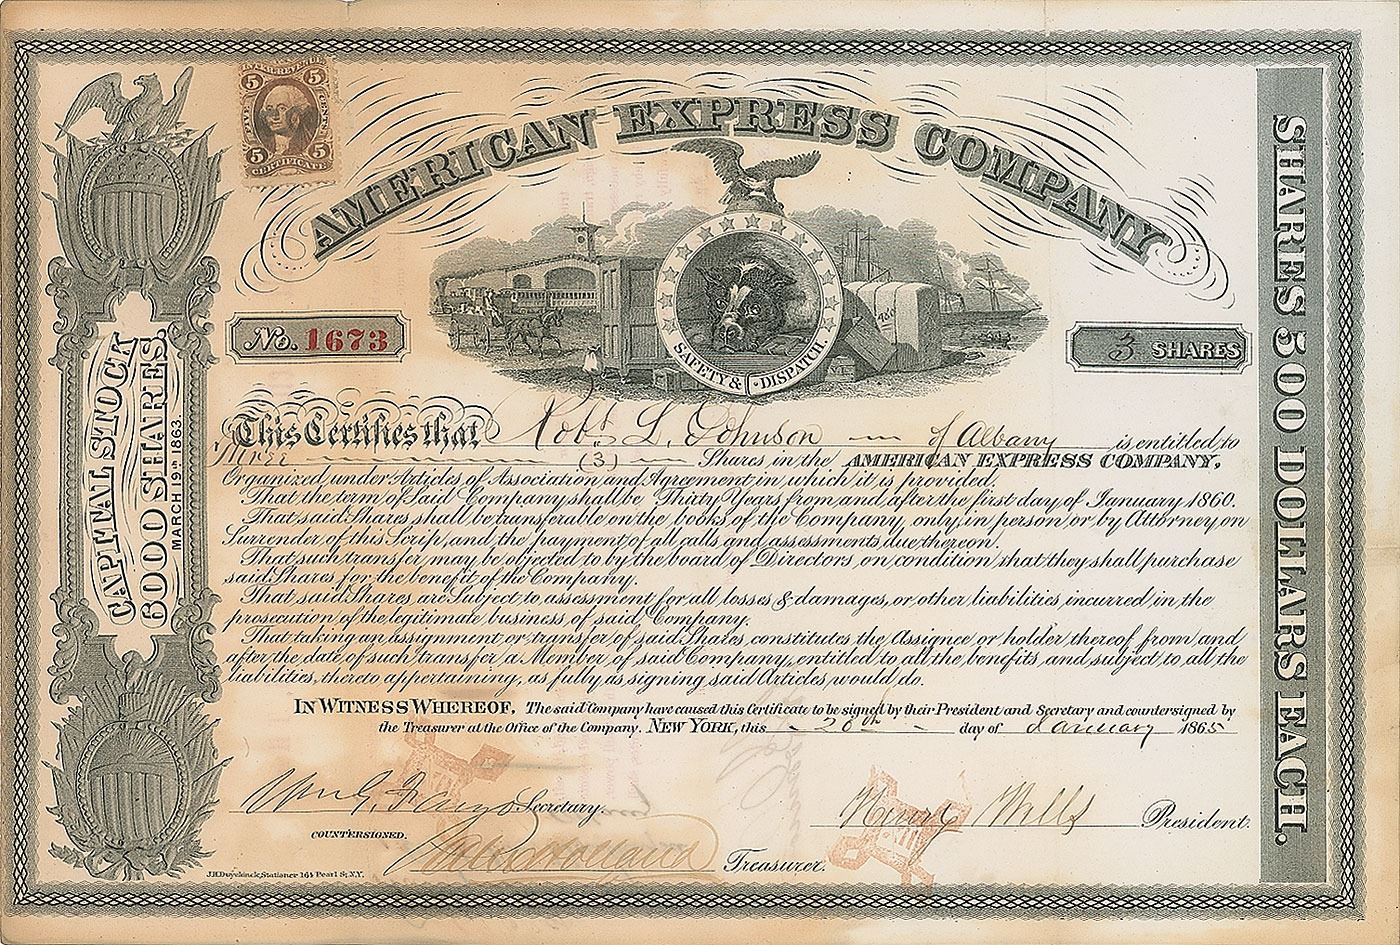 AMERICAN EXPRESS COMPANY
5 5
FIVE CENTS
5 5
CERTIFICATE
SAFETY & DISPATCH.
No. 1673
3 SHARES
CAPITAL STOCK
6000 SHARES.
MARCH 19th 1863.
SHARES 500 DOLLARS EACH.
This Certifies that Robt. L. Johnson of Albany is entitled to
Three (3) Shares in the AMERICAN EXPRESS COMPANY,
Organized under Articles of Association and Agreement in which it is provided.
That the term of Said Company shall be Thirty Years from and after the first day of January 1860.
That said Shares shall be transferable on the books of the Company, only, in person or by Attorney on
Surrender of this Scrip, and the payment of all calls and assessments due thereon.
That such transfer may be objected to by the board of Directors, on condition that they shall purchase
said Shares for the benefit of the Company.
That said Shares, are Subject to assessment for all losses & damages, or other liabilities, incurred in the
prosecution of the legitimate business of said, Company.
That taking an assignment or transfer of said Shares, constitutes the Assignee or holder thereof, from and
after the date of such transfer, a Member of said Company, entitled to all the benefits, and subject to all the
liabilities, thereto appertaining, as fully as signing, said Articles, would do.
IN WITNESS WHEREOF, The said Company have caused this Certificate to be signed by their President and Secretary and countersigned by
the Treasurer at the Office of the Company. NEW YORK, this 28th day of January 1865
Secretary.
Henry Wells President.
COUNTERSIGNED.
Holland Treasurer.
J.H. Duyckinck, Stationer 164 Pearl St. N.Y.